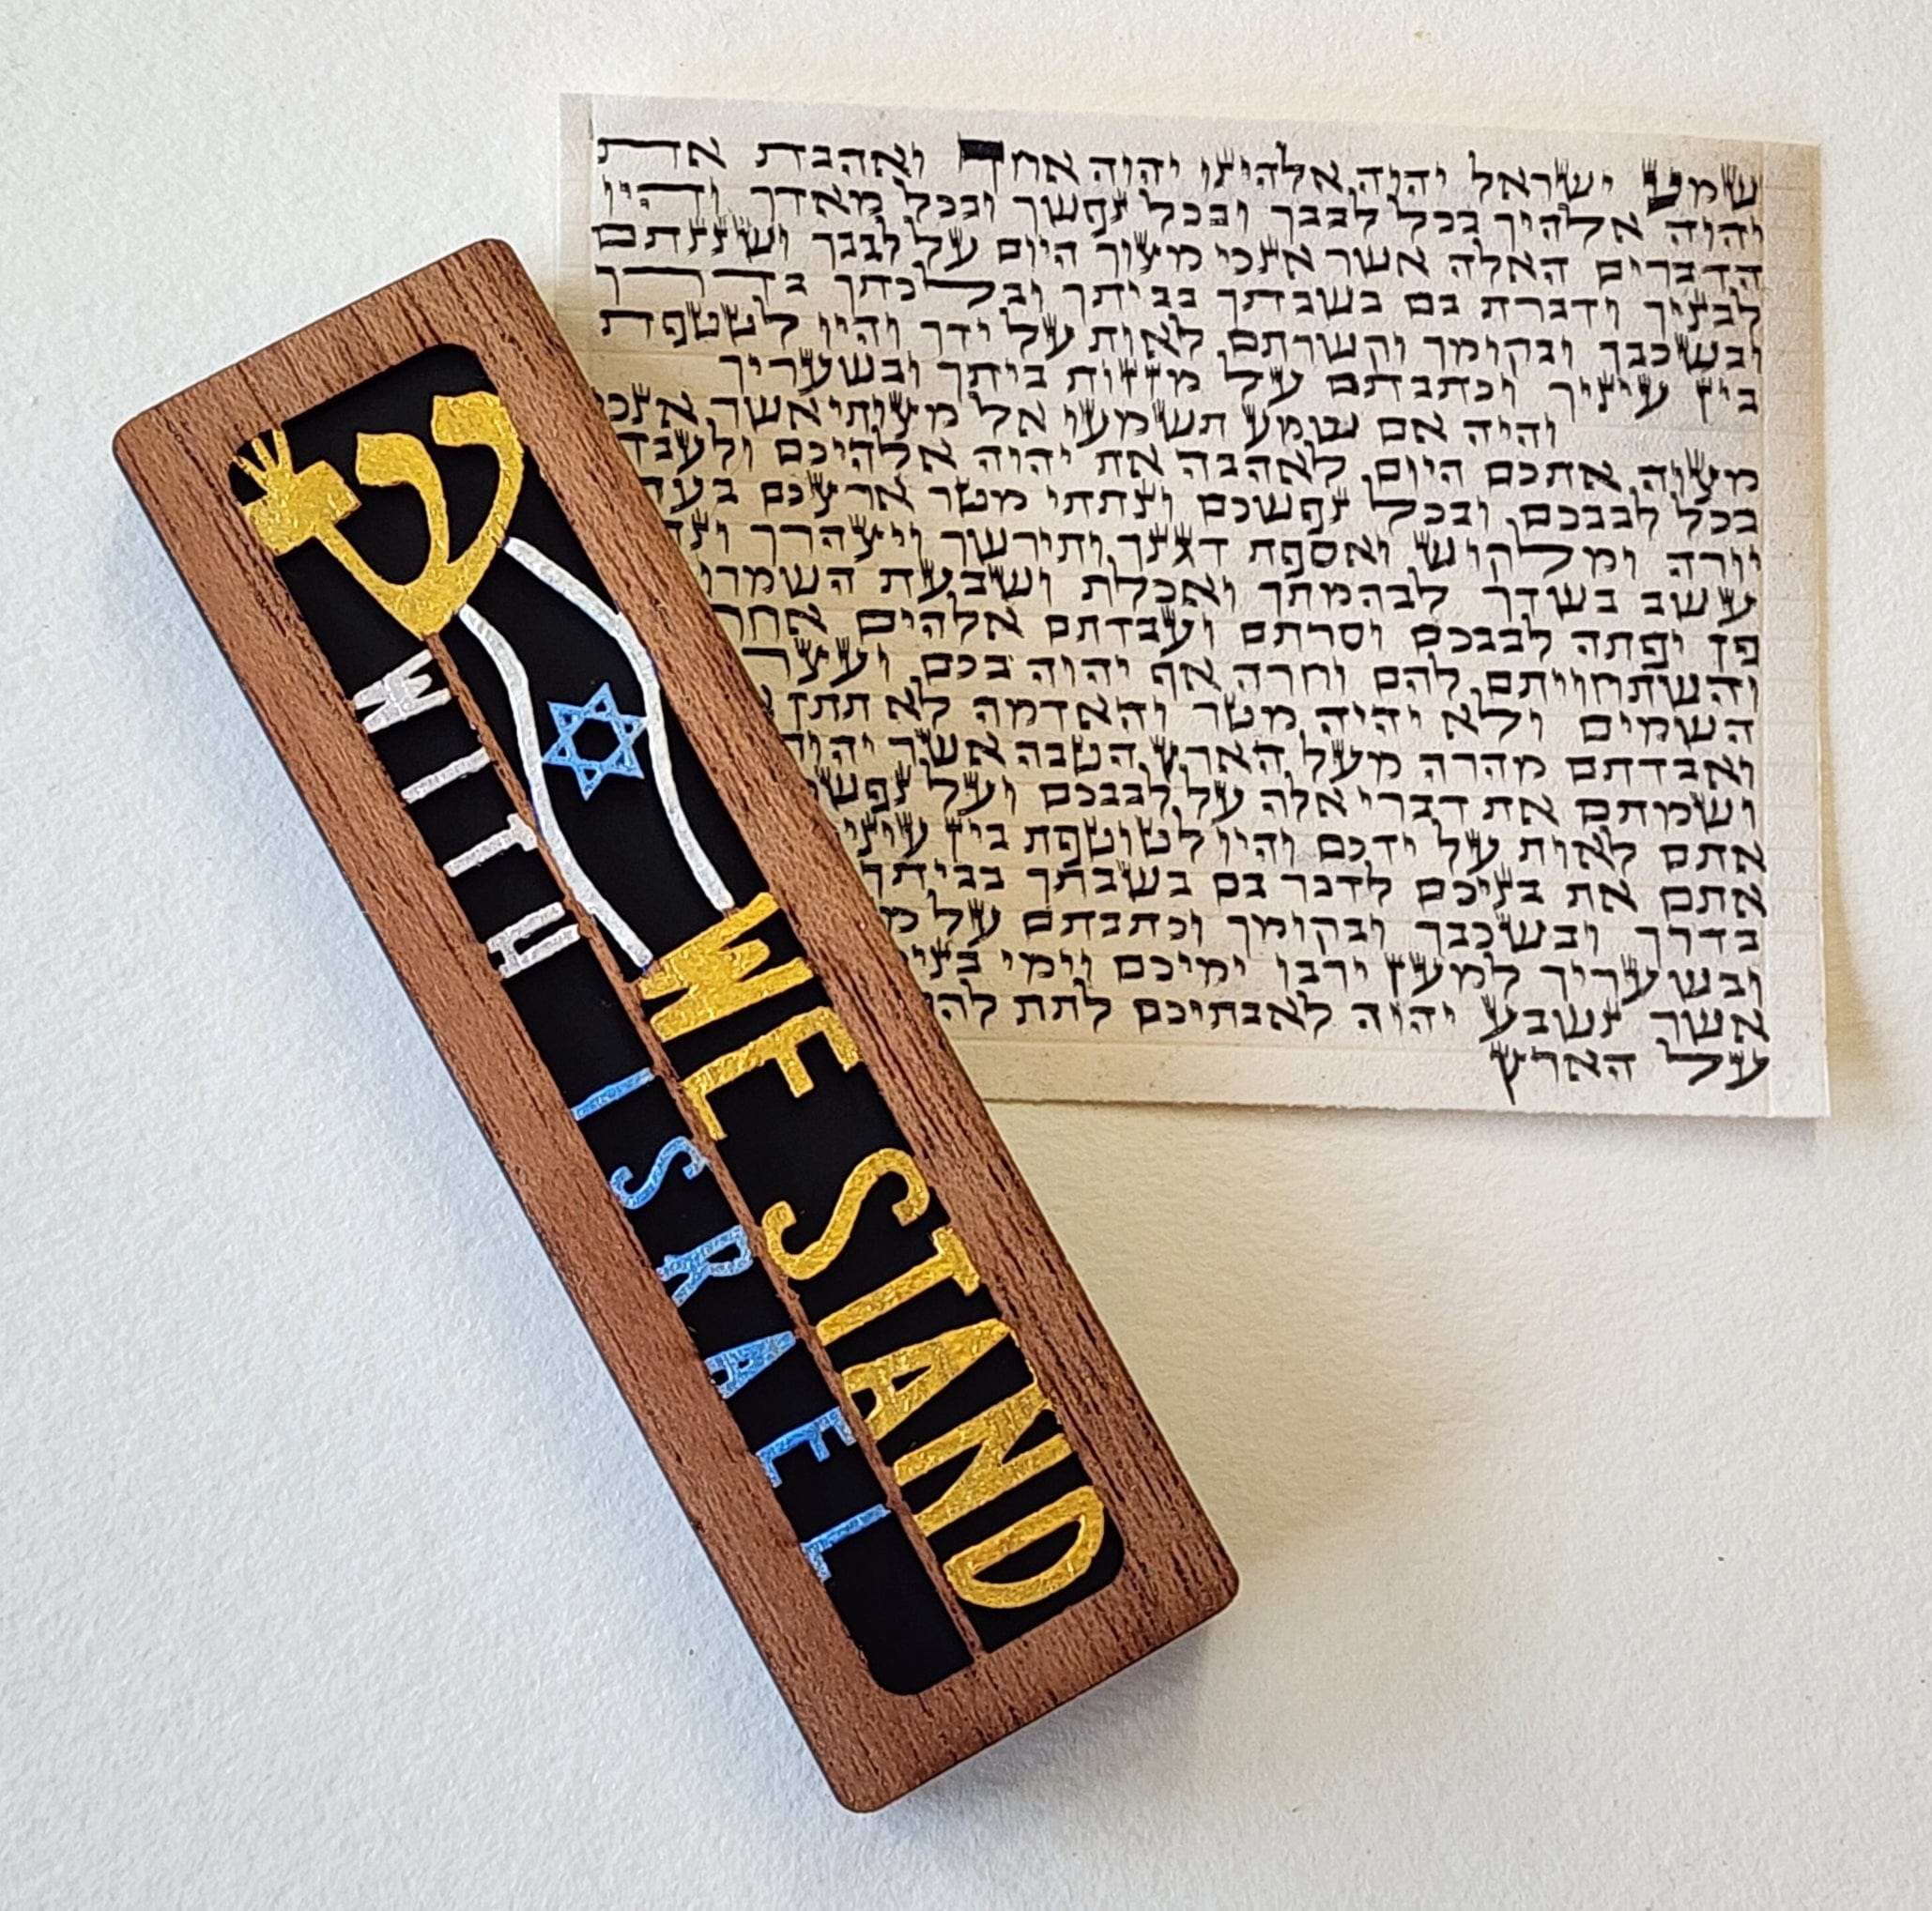 ש
WE STAND
WITH ISRAEL
שמע ישראל יהוה אלהינו יהוה אחד ואהבת את
יהוה אלהיך בכל לבבך ובכל נפשך ובכל מאדך והיו
הדברים האלה אשר אנכי מצוך היום על לבבך ושננתם
לבניך ודברת בם בשבתך בביתך ובלכתך בדרך
ובשכבך ובקומך וקשרתם לאות על ידך והיו לטטפת
בין עיניך וכתבתם על מזזות ביתך ובשעריך
והיה אם שמע תשמעו אל מצותי אשר
מצוה אתכם היום לאהבה את יהוה אלהיכם
בכל לבבכם ובכל נפשכם ונתתי מטר ארצכם
יורה ומלקוש ואספת דגנך ותירשך ויצהרך
עשב בשדך לבהמתך ואכלת ושבעת השמרו
פן יפתה לבבכם וסרתם ועבדתם אלהים
והשתחויתם להם וחרה אף יהוה בכם ועצר
השמים ולא יהיה מטר והאדמה לא תתן
ואבדתם מהרה מעל הארץ הטבה אשר יהוה
ושמתם את דברי אלה על לבבכם ועל
אתם לאות על ידכם והיו לטוטפת בין
אתם את בניכם לדבר בם בשבתך בביתך
בדרך ובשכבך ובקומך וכתבתם על
ובשעריך למען ירבו ימיכם וימי
אשר נשבע יהוה לאבתיכם לתת
על הארץ